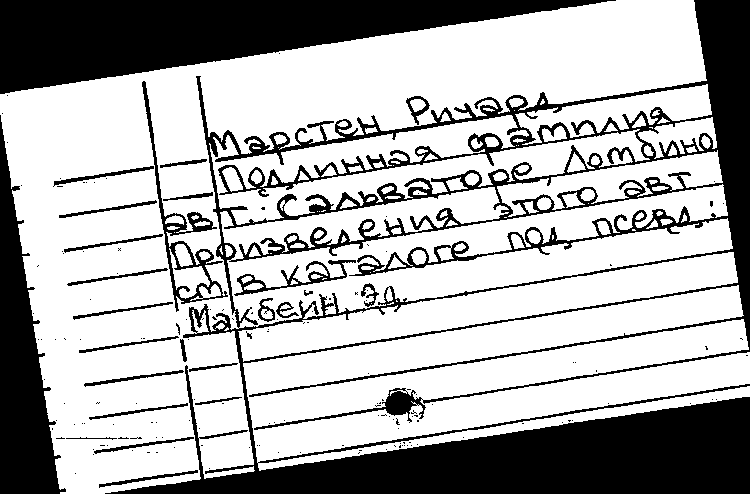 Марстен, Ричард
Подлинная фамилия
авт.: Сальваторе, Ломбино
Произведения этого авт
см. в каталоге под псевд.:
Макбейн, Эд.